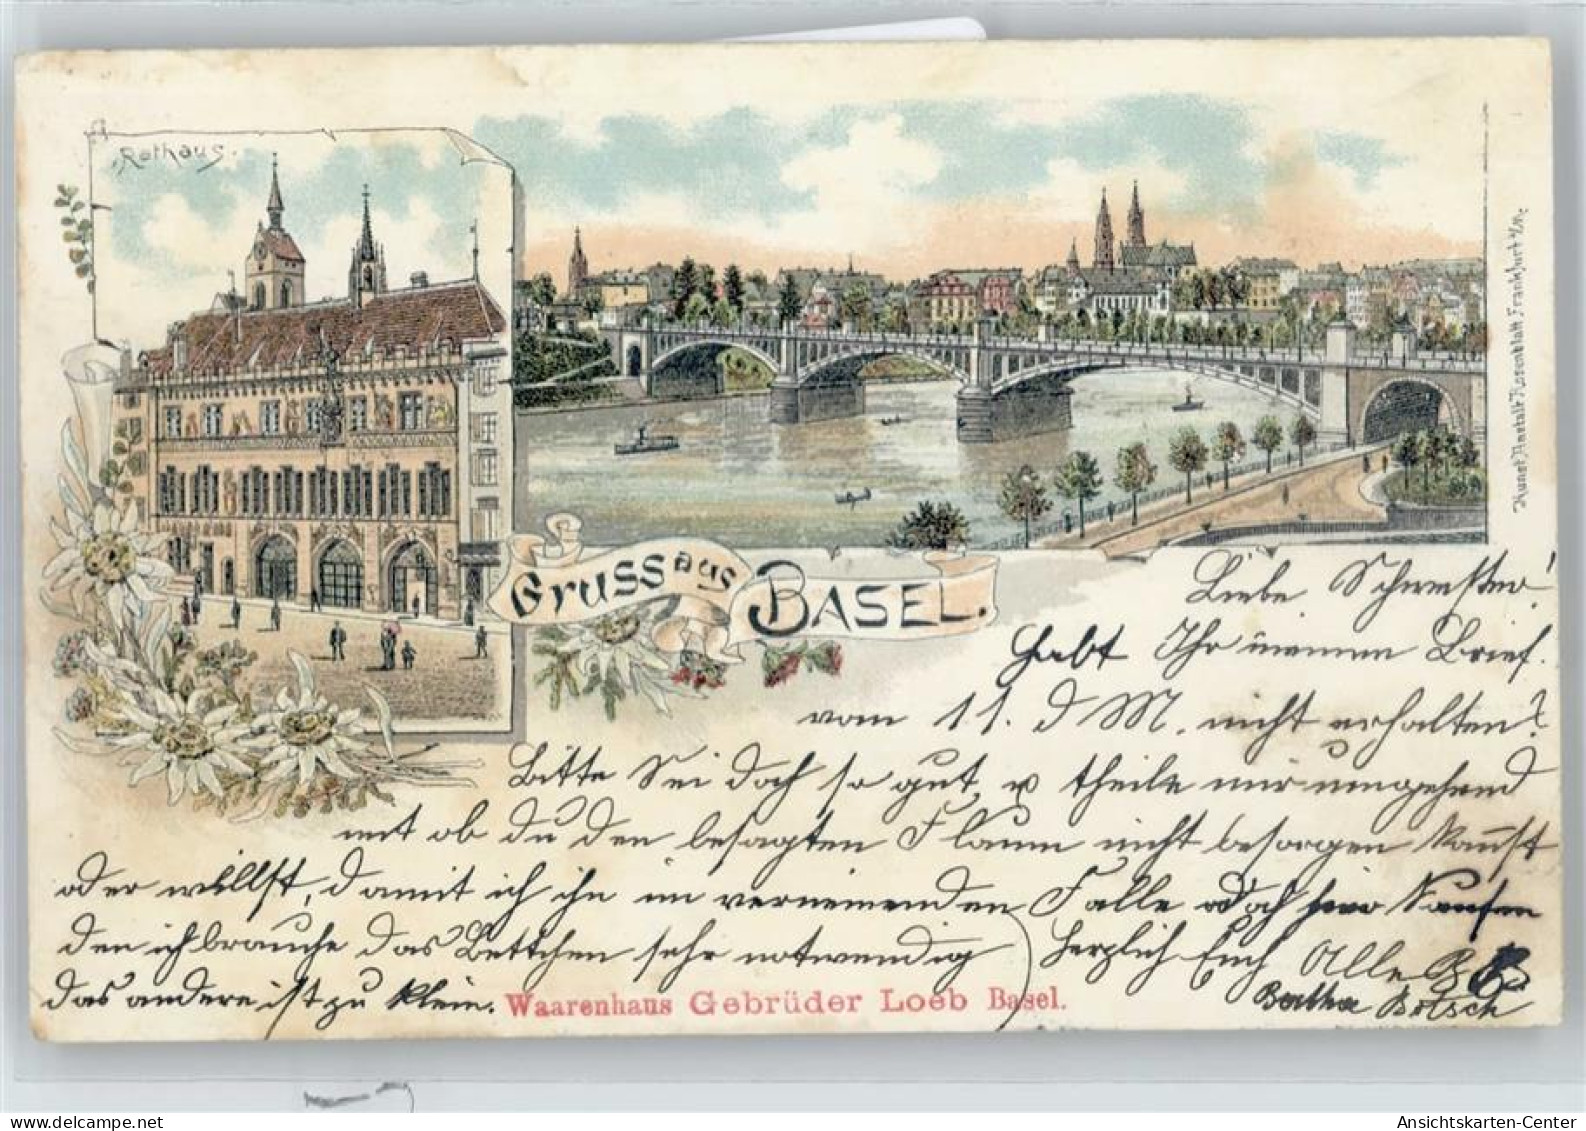 Rathaus.
Gruss aus BASEL.
Kunst-Anstalt Rosenblatt Frankfurt a/M.
Liebe Schwester!
Habt Ihr meinen Brief.
vom 11. d M. nicht erhalten?
Bitte sei doch so gut u theile mir umgehend
mit ob du den besagten Flaum nicht besorgen kannst
oder willst, damit ich ihn im verneinenden Falle doch hier kaufen
den ich brauche das Bettchen sehr notwendig
das andere ist zu klein.
Herzlich Euch Alle
Bertha Bötsch
Waarenhaus Gebrüder Loeb Basel.
www.delcampe.net
Ansichtskarten-Center